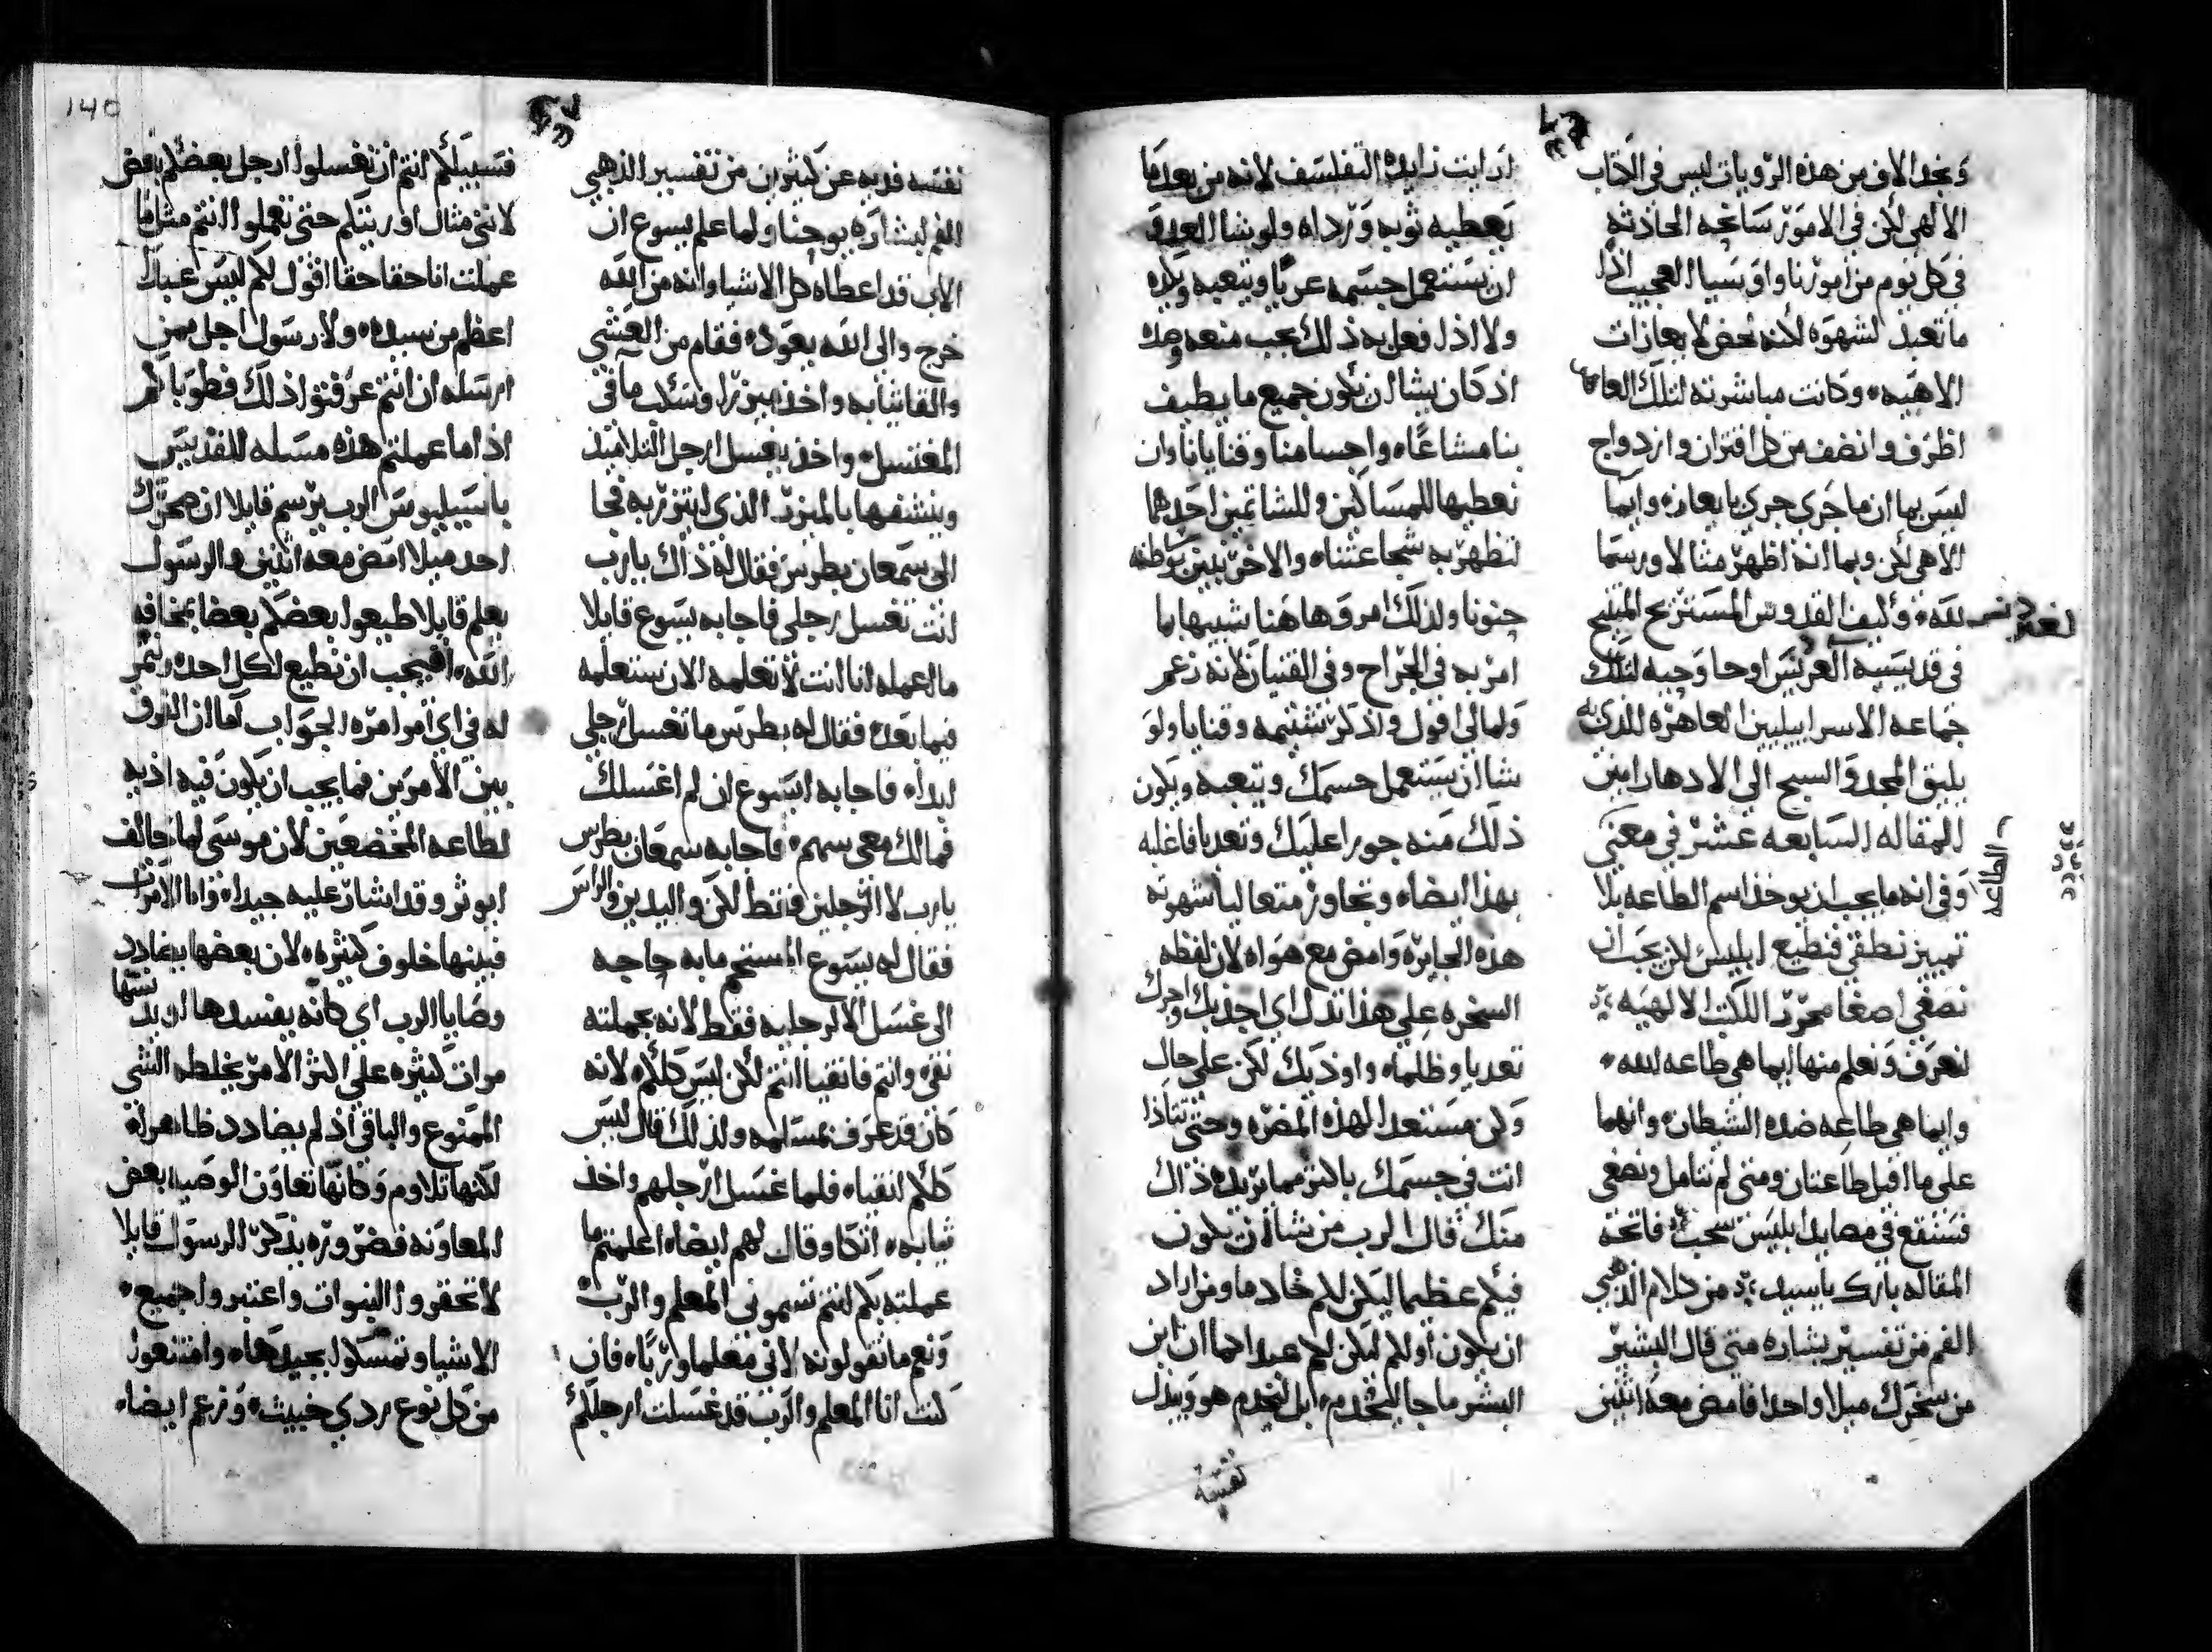 ونجد الاف من هذه الرويات ليس في الكتاب
الالهي لكن في الامور سانحه الحادثه
في كل يوم من امورنا واوسيا العجيب اذا
ما تعبد لشهوه لكنه نحض لا بعازات
الاهيه وكانت مباشرته لتلك العا
اظرف وانضف من كل اقتران وازدواج
ليس بما ان ما جرى جرى بابعازه وايما
الاهي لكن وبما انه اظهر مثالا ورسما
لله وليف القدوس المستريح المنيح
في قديسيه العريس اوحا وجيه لتلك
جماعه الاسراييليين العاهره للذي به
يليق المجد والسبح الي الادهار امين
المقاله السابعه عشر في معني
الطاعه
وفي انه ما يجب ان يوخذ اسم الطاعه بلا
تمييز نطقي فنطيع ابليس لكن يجب ان
نصغي اصغا محرر اللكتب الالهيه
لنعرف ونعلم منها ايما هي طاعه لله
وايما هي طاعه ضده الشيطان وانهما
علي ما اقبل طاعتان ومتي لم نتامل ونصغي
فسنقع في مصايد ابليس فاتحة
المقاله بارك ياسيد من كلام الذهبي
الفم من تفسير بشاره متي قال البشير
من سخرك ميلا واحدا فامض معه اثنين
ارايت زايدة التفلسف لانه من بعد ما
يعطيه ثوبه ورداه ولو شا العدو
ان يستعمل جسمه عريا ويتعبه وكده
ولا اذا فعل به ذلك يجب منعه وصده
اذ كان يشا ان تكون جميع ما يطيف
بنا مشاعا واجسامنا وقنايانا وان
نعطيها للمساكين وللشاتمين احدهما
لتظهر به شجاعتنا والاخر يلين توطنه
حنونا ولذلك امر وهاهنا شبيها بما
امر به في الجراح وفي القنيان لانه زعم
ولما لي اقول واذكر شتيمه وقنايا ولو
شا ان يستعمل جسمك ويتعبه ويكون
ذلك منه جورا عليك وتعديا فاغلبه
بهذا ايضا وتجاوز متعاليا شهوته
هذه الجايره وامض مع هواه لان لفظه
السخره علي هذا تدل اي اجذبك واجرك
تعديا وظلما واوذيك لكن علي حال
وكن مستعدا لهذه المضره وحتي تتاذا
انت في جسمك باكثر مما يريده ذاك
منك قال الرب من شا ان يكون
فيكم عظيما ليكن لكم خادما ومن اراد
ان يكون اولكم ليكن لكم عبدا كما ان ابن
البشر ما جا ليُخدم ابل ليَخدم هو ويبذل
نفسه
نفسه فديه عن كثيرين من تفسير الذهبي
الفم لبشاره يوحنا ولما علم يسوع ان
الاب قد اعطاه كل الاشيا وانه من الله
خرج والي الله يعود فقام من العشي
والقا ثيابه واخذ ميزرا وسكب ما في
المغتسل واخذ يغسل ارجل التلاميذ
وينشفها بالميزر الذي ايتزر به فجا
الي سمعان بطرس فقال له ذاك يارب
انت تغسل رجلي فاجابه يسوع قايلا
ما اعمله انا انت لا تعلمه الان ستعلمه
فيما بعد فقال له بطرس ما تغسل رجلي
ابدا فاجابه ايسوع ان لم اغسلك
فما لك معي سهم فاجابه سمعان بطرس
يارب لا الرجلين فقط لكن واليدين والراس
فقال له يسوع المستحم ما به حاجه
الي غسل الا لرجليه فقط لانه بجملته
نقي وانتم فانقيا انتم لكن ليس كلكم لانه
كان قد عرف بمسلمه ولذلك قال ليس
كلكم انقيا فلما غسل ارجلهم واخذ
ثيابه اتكا وقال لهم ايضا اعلمتم ما
عملته بكم انتم تسموني المعلم والرب
ونعم ما تقولونه لاني معلما وربا فان
كنت انا المعلم والرب قد غسلت ارجلكم
140
فسبيلكم انتم ان تغسلوا ارجل بعضكم بعض
لانني مثال اوريتكم حتي تعملوا انتم مثل ما
عملت انا حقا حقا اقول لكم ليس عبدا
اعظم من سيده ولا رسول اجل ممن
ارسله ان انتم عرفتوا ذلك فطوباكم
اذا ما عملتم هذه مسله للقديس
باسيليوس الرب يرسم قايلا ان سخرك
احد ميلا امض معه اثنين والرسول
يعلم قايلا طيعوا بعضكم بعضا بمخافه
الله افيجب ان نطيع لكل احد يامر
له في اي امر امره الجواب اما ان الفرق
بين الامرين فما يجب ان يكون فيه اذيه
لطاعه المخضعين لان موسي لما خالف
ايوثرو قد اشار عليه جيدا واما الاوامر
فبينها خلوف كثيره لان بعضها يضادد
وصايا الرب اي كانه يفسدها او يدنسها
مرات كثيره علي اكثر الامر بخلطه الشي
الممنوع والباقي اذ لم يضادد ظاهرا
لكنها تلاوم وكانها تعاون الوصيه بعض
المعاونه فضروره يذكر الرسول قايلا
لا تحقروا النبوات واعتبروا جميع
الاشيا وتمسكوا بجيدها وامتنعوا
من كل نوع ردي خبيث وزعم ايضا